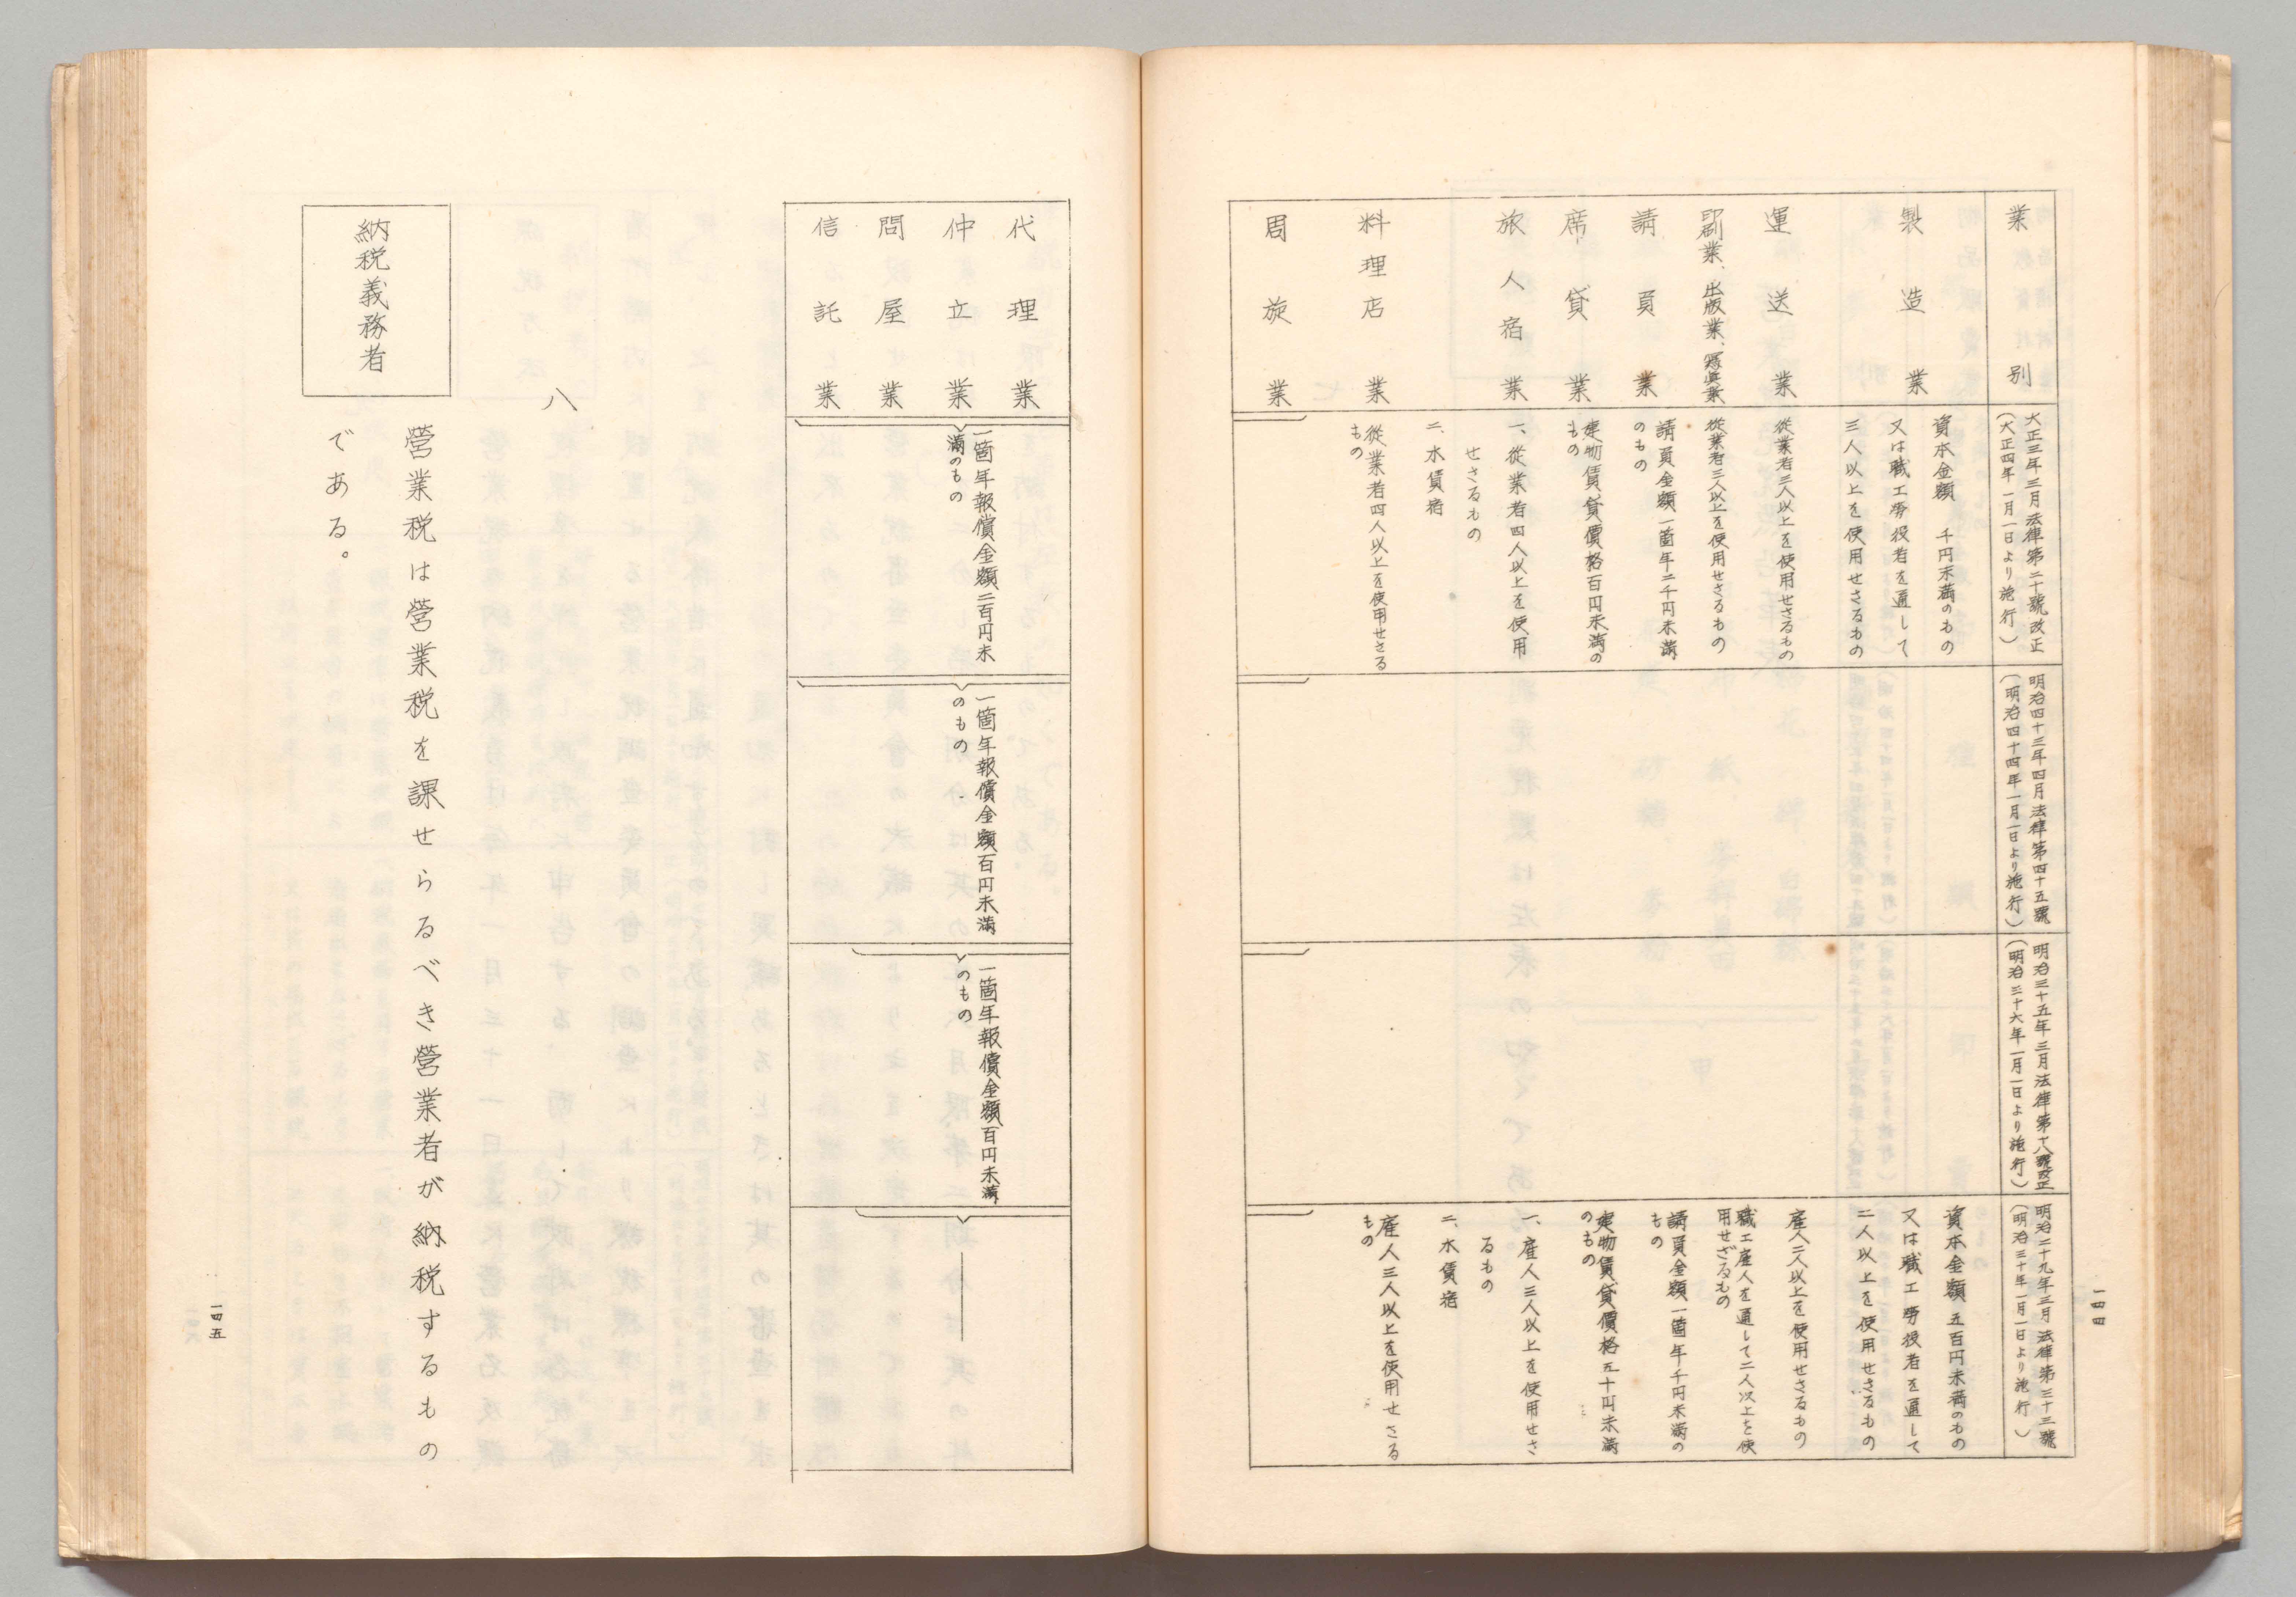 業別
大正三年三月法律第二十號改正
（大正四年一月一日より施行）
明治四十三年四月法律第四十五號
（明治四十四年一月一日より施行）
明治三十五年三月法律第十八號改正
（明治三十六年一月一日より施行）
明治二十九年三月法律第三十三號
（明治三十年一月一日より施行）
製造業
資本金額 千円未満のもの
又は職工勞役者を通して
三人以上を使用せさるもの
資本金額 五百円未満のもの
又は職工勞役者を通して
二人以上を使用せさるもの
運送業
從業者三人以上を使用せさるもの
雇人二人以上を使用せさるもの
印刷業、出版業、寫眞業
從業者三人以上を使用せさるもの
職工雇人を通して二人以上を使
用せざるもの
請負業
請負金額一箇年二千円未満
のもの
請負金額一箇年千円未満の
もの
席貸業
建物賃貸價格百円未満の
もの
建物賃貸價格五十円未満
のもの
旅人宿業
一、從業者四人以上を使用
せさるもの
二、木賃宿
一、雇人三人以上を使用せさ
るもの
二、木賃宿
料理店業
從業者四人以上を使用せさる
もの
雇人三人以上を使用せさる
もの
周旋業
一四四
代理業
仲立業
問屋業
信託業
一箇年報償金額二百円未
満のもの
一箇年報償金額百円未満
のもの
一箇年報償金額百円未満
のもの
八
納税義務者
營業税は營業税を課せらるべき營業者が納税するもの
である。
一四五